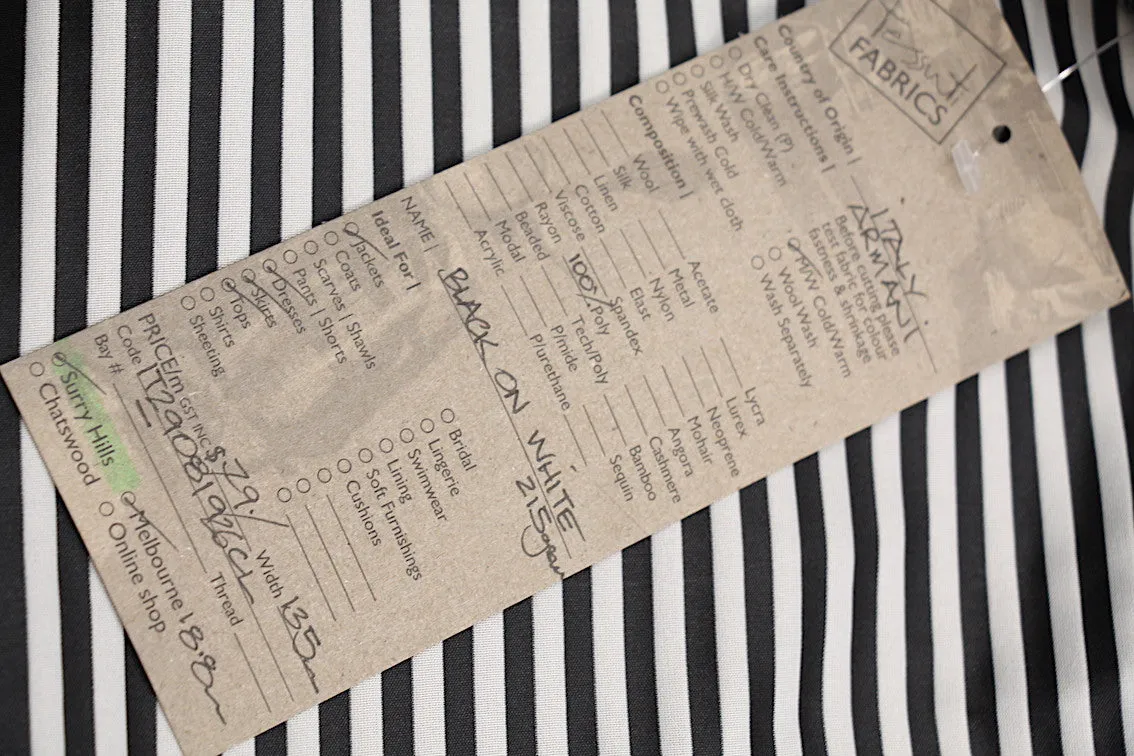 Tessuti
FABRICS
Country of Origin | ITALY.
ARMANI
Care Instructions | Before cutting please
test fabric for colour
fastness & shrinkage
Dry Clean (P)
H/W Cold/Warm
Silk Wash
Prewash Cold
Wipe with wet cloth
M/W Cold/Warm
Wool Wash
Wash Separately
Composition |
Wool
Silk
Linen
Cotton
Viscose
Rayon
Beaded
Modal
Acrylic
Acetate
Metal
Nylon
Elast
Spandex
100% Poly
Tech/Poly
P/mide
P/urethane
Lycra
Lurex
Neoprene
Mohair
Angora
Cashmere
Bamboo
Sequin
NAME | BLACK ON WHITE
215gram
Ideal For |
Jackets
Coats
Scarves | Shawls
Pants | Shorts
Dresses
Skirts
Tops
Shirts
Sheeting
Bridal
Lingerie
Swimwear
Lining
Soft Furnishings
Cushions
PRICE/m GST INC $29./ Width 135m
Code IT290819926CL Thread
Bay #
Surry Hills
Chatswood
Melbourne 18.8m
Online shop